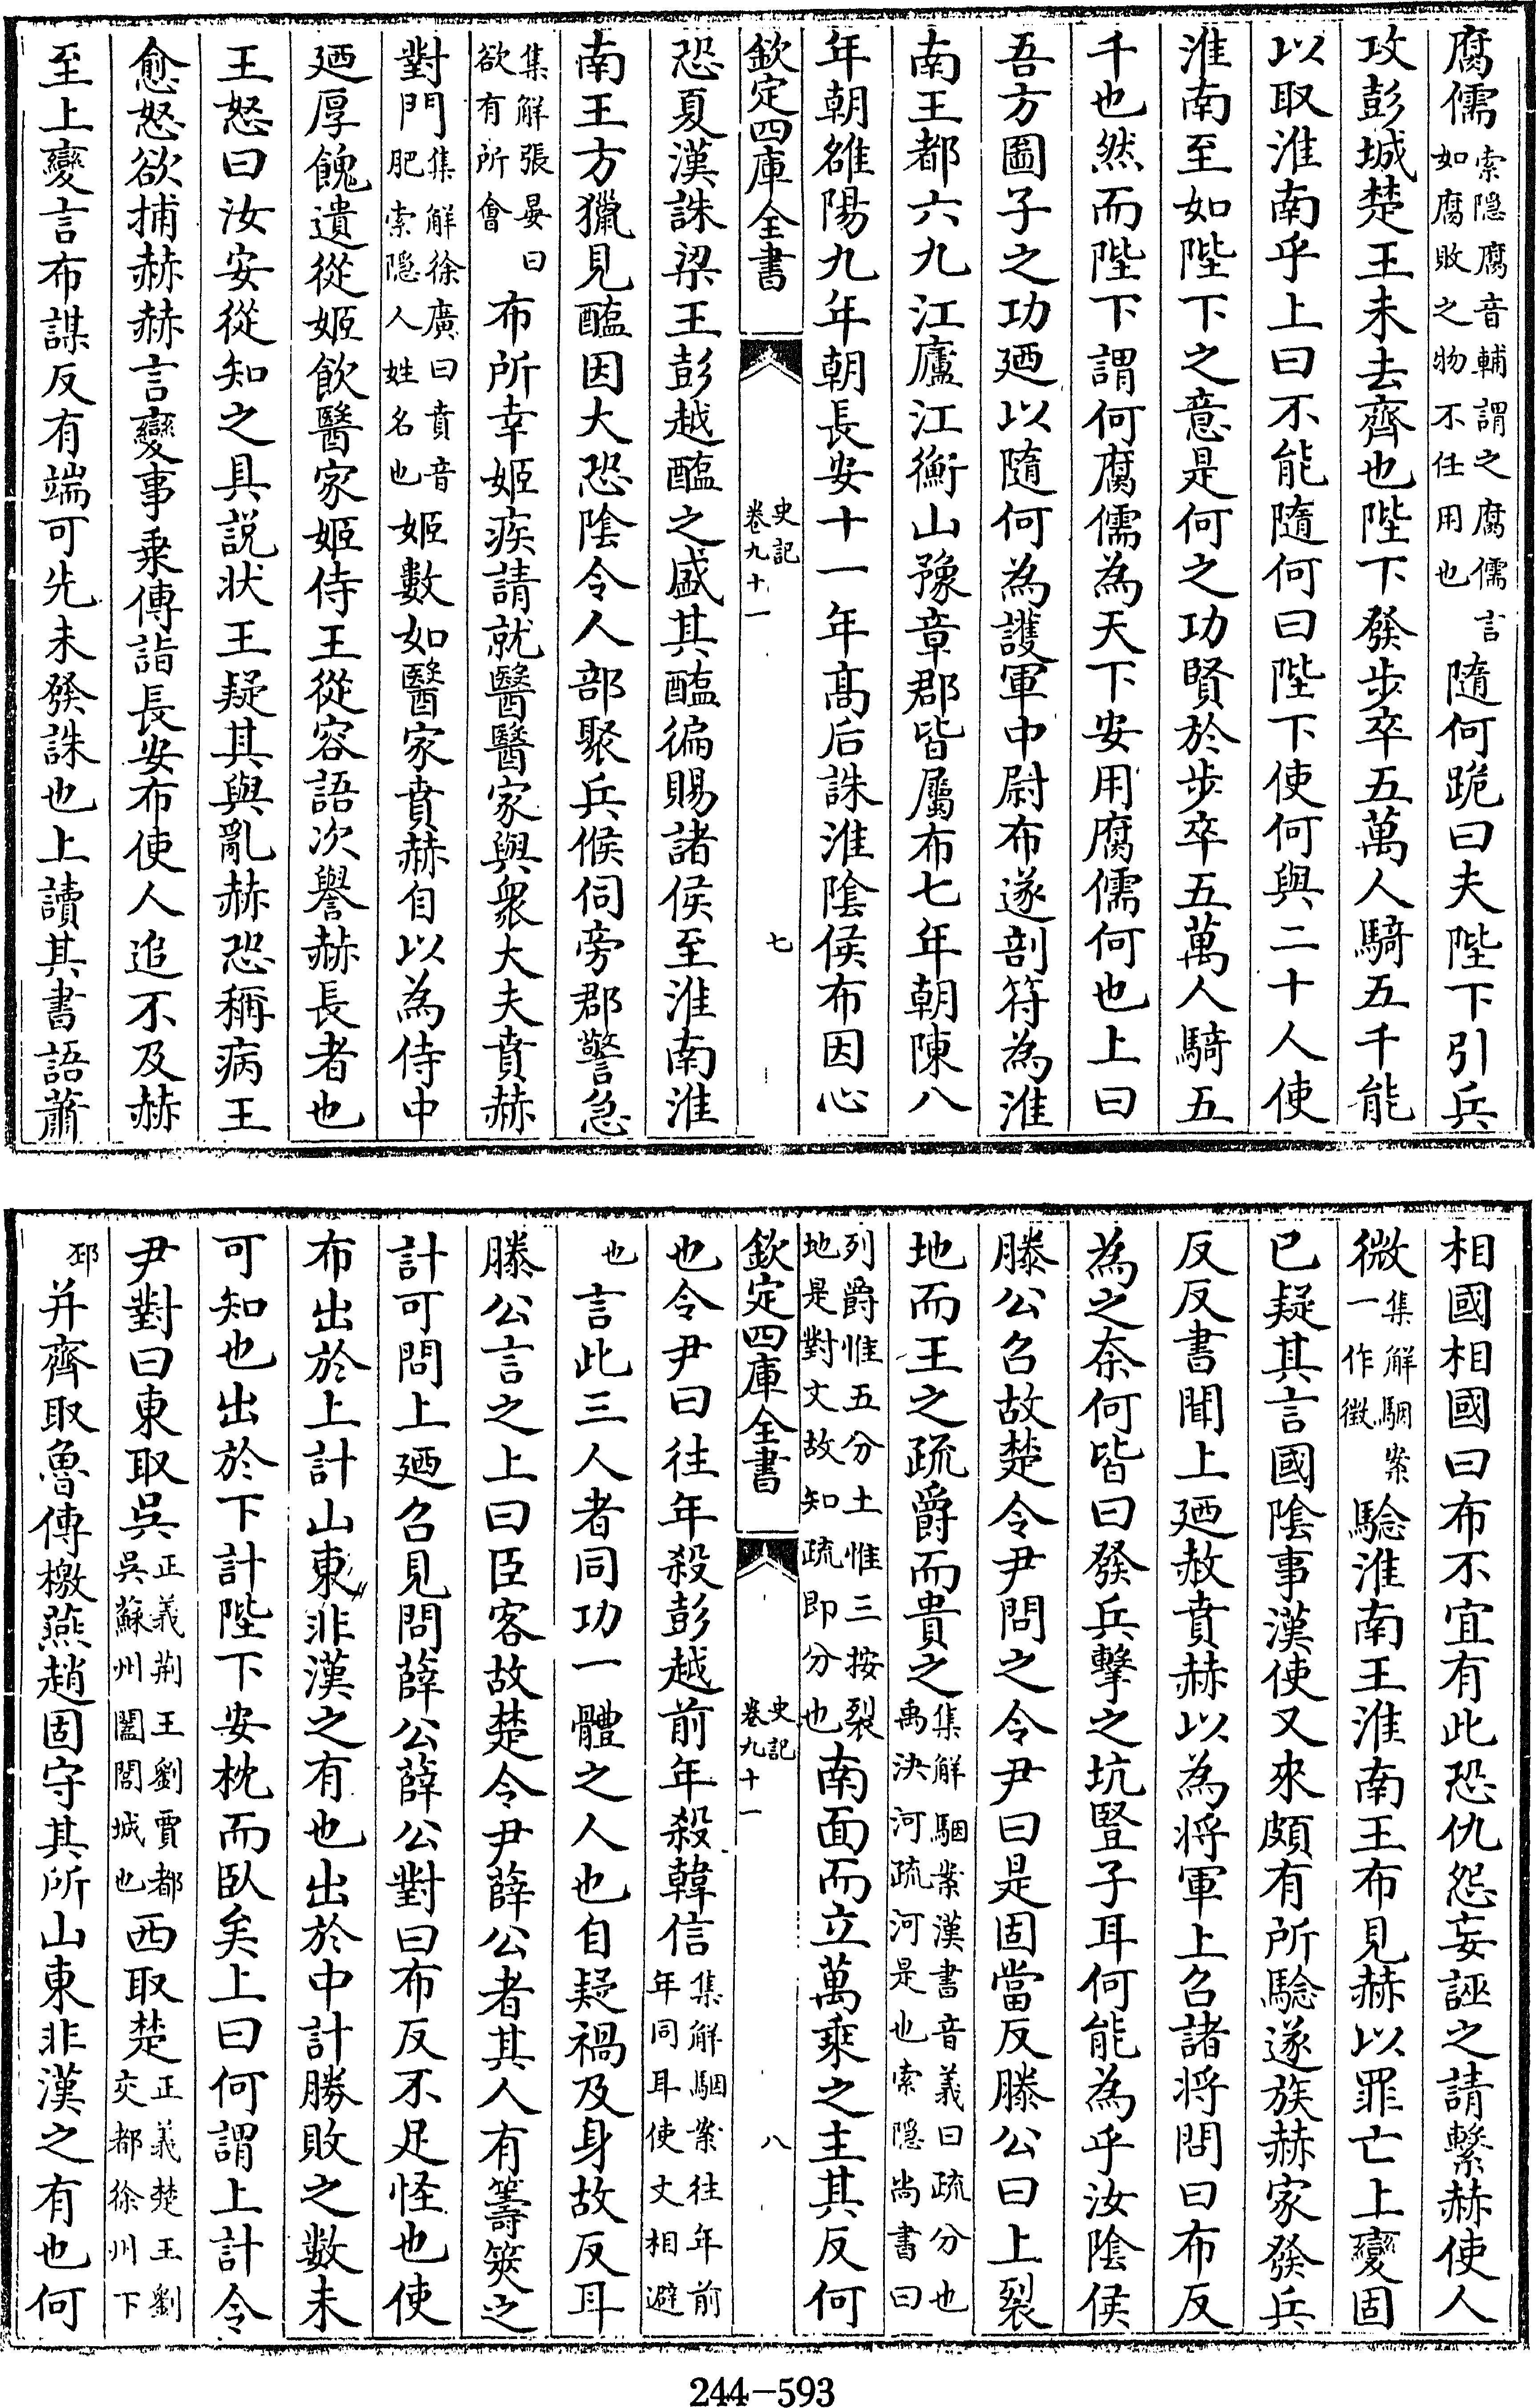 腐儒索隱腐音輔謂之腐儒言如腐敗之物不任用也隨何跪曰夫陛下引兵
攻彭城楚王未去齊也陛下發步卒五萬人騎五千能
以取淮南乎上曰不能隨何曰陛下使何與二十人使
淮南至如陛下之意是何之功賢於步卒五萬人騎五
千也然而陛下謂何腐儒為天下安用腐儒何也上曰
吾方圖子之功廼以隨何為護軍中尉布遂剖符為淮
南王都六九江廬江衡山豫章郡皆屬布七年朝陳八
年朝雒陽九年朝長安十一年髙后誅淮隂侯布因心
欽定四庫全書 史記卷九十一 七
恐夏漢誅梁王彭越醢之盛其醢徧賜諸侯至淮南淮
南王方獵見醢因大恐隂令人部聚兵候伺旁郡警急
集解張晏曰欲有所會布所幸姬疾請就醫醫家與衆大夫賁赫
對門集解徐廣曰賁音肥索隱人姓名也姬數如醫家賁赫自以為侍中
廼厚餽遺從姬飲醫家姬侍王從容語次譽赫長者也
王怒曰汝安從知之具説狀王疑其與亂赫恐稱病王
愈怒欲捕赫赫言變事乗傳詣長安布使人追不及赫
至上變言布謀反有端可先未發誅也上讀其書語蕭
相國相國曰布不宜有此恐仇怨妄誣之請繫赫使人
微集解駰案一作徴驗淮南王淮南王布見赫以罪亡上變固
已疑其言國隂事漢使又來頗有所驗遂族赫家發兵
反反書聞上廼赦賁赫以為將軍上召諸將問曰布反
為之奈何皆曰發兵擊之坑豎子耳何能為乎汝隂侯
滕公召故楚令尹問之令尹曰是固當反滕公曰上裂
地而王之疏爵而貴之集解駰案漢書音義曰疏分也禹決河疏河是也索隱尚書曰
列爵惟五分土惟三按裂地是對文故知疏即分也南面而立萬乘之主其反何
欽定四庫全書 史記卷九十一 八
也令尹曰往年殺彭越前年殺韓信集解駰案往年前年同耳使文相避
也言此三人者同功一體之人也自疑禍及身故反耳
滕公言之上曰臣客故楚令尹薛公者其人有籌筴之
計可問上廼召見問薛公薛公對曰布反不足怪也使
布出於上計山東非漢之有也出於中計勝敗之數未
可知也出於下計陛下安枕而臥矣上曰何謂上計令
尹對曰東取吳正義荆王劉賈都吳蘇州闔閭城也西取楚正義楚王劉交都徐州下
邳并齊取魯傳檄燕趙固守其所山東非漢之有也何
244-593